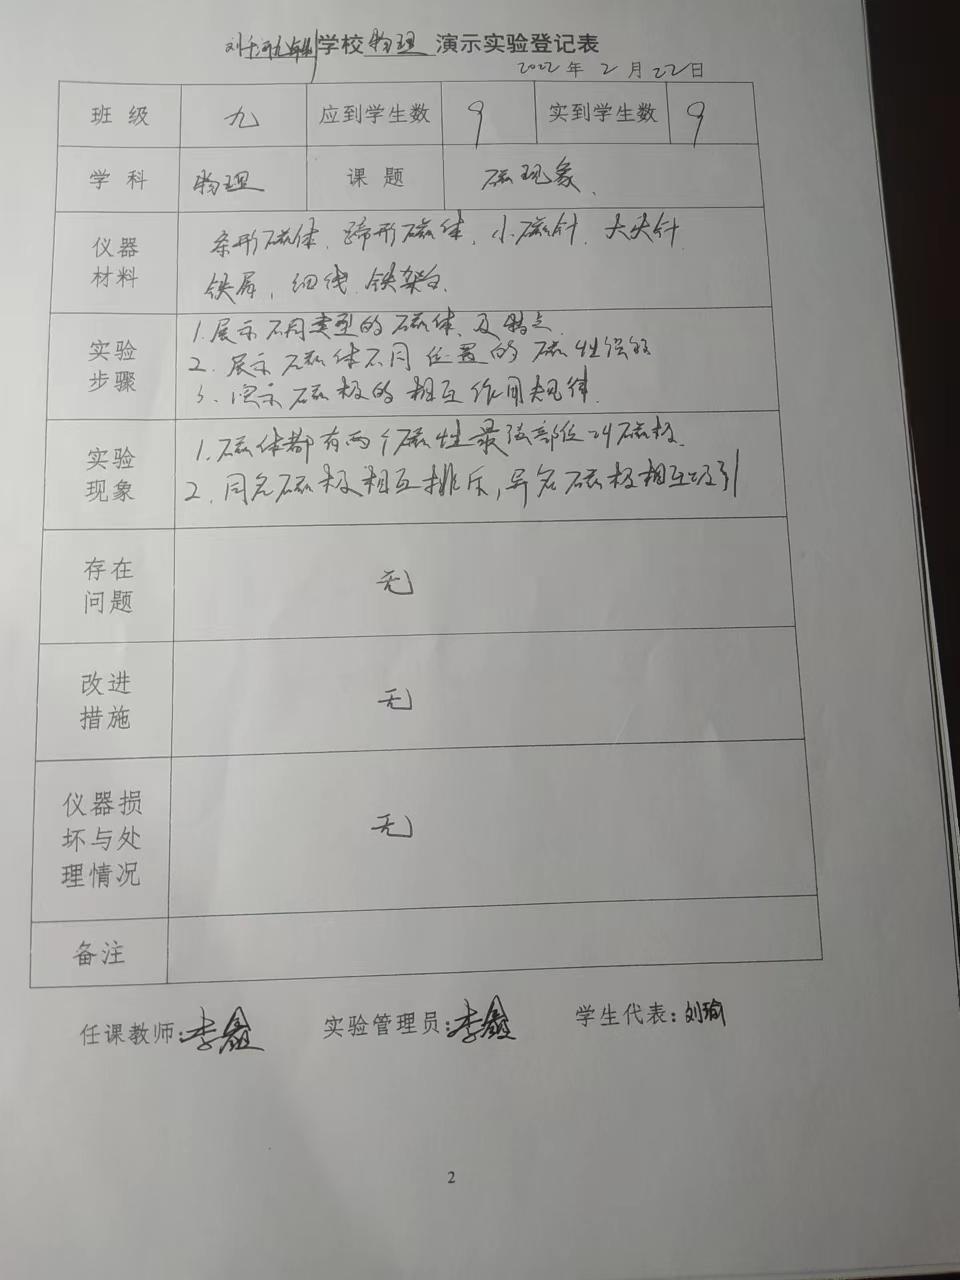 刘十河九年制学校 物理 演示实验登记表
2022 年 2 月 22 日
班 级 九 应到学生数 9 实到学生数 9
学 科 物理 课 题 磁现象、
仪器材料 条形磁体、蹄形磁体、小磁针、大头针
铁屑、细线、铁架台、
实验步骤 1.展示不同类型的磁体、及特点、
2.展示磁体不同位置的磁性强弱
3.演示磁极的相互作用规律.
实验现象 1.磁体都有两个磁性最强部位叫磁极.
2.同名磁极相互排斥,异名磁极相互吸引
存在问题 无
改进措施 无
仪器损坏与处理情况 无
备注
任课教师:李鑫 实验管理员:李鑫 学生代表:刘瑜
2